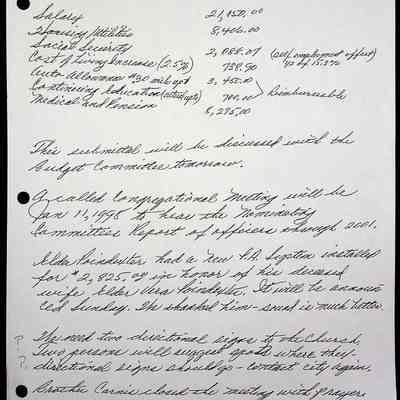 Salary 21,150.00
Housing/Utilities 8,406.00
Social Security 2,088.07 (self employment offset)
Cost of Living Increase (2.5%) 738.90 1/2 of 15.3%
Auto Allowance #30 mile opt 3,450.00
Continuing Education (attend opt) 700.00 Reimbursable
Medical and Pension 8,275.00
This submittal will be discussed with the
Budget Committee tomorrow.
A called Congregational Meeting will be
Jan 11, 1998 to hear the Nominating
Committees Report of officers through 2001.
Elder Poindexter had a new P.A. System installed
for $2,825.09 in honor of his deceased
wife, Elder Vera Poindexter. It will be announ
ced Sunday. We thanked him - sound is much better.
? We need two directional signs to the Church.
? Two persons will suggest spots where they-
directional signs should go - contact city again.
Brother Carnie closed the meeting with prayer.